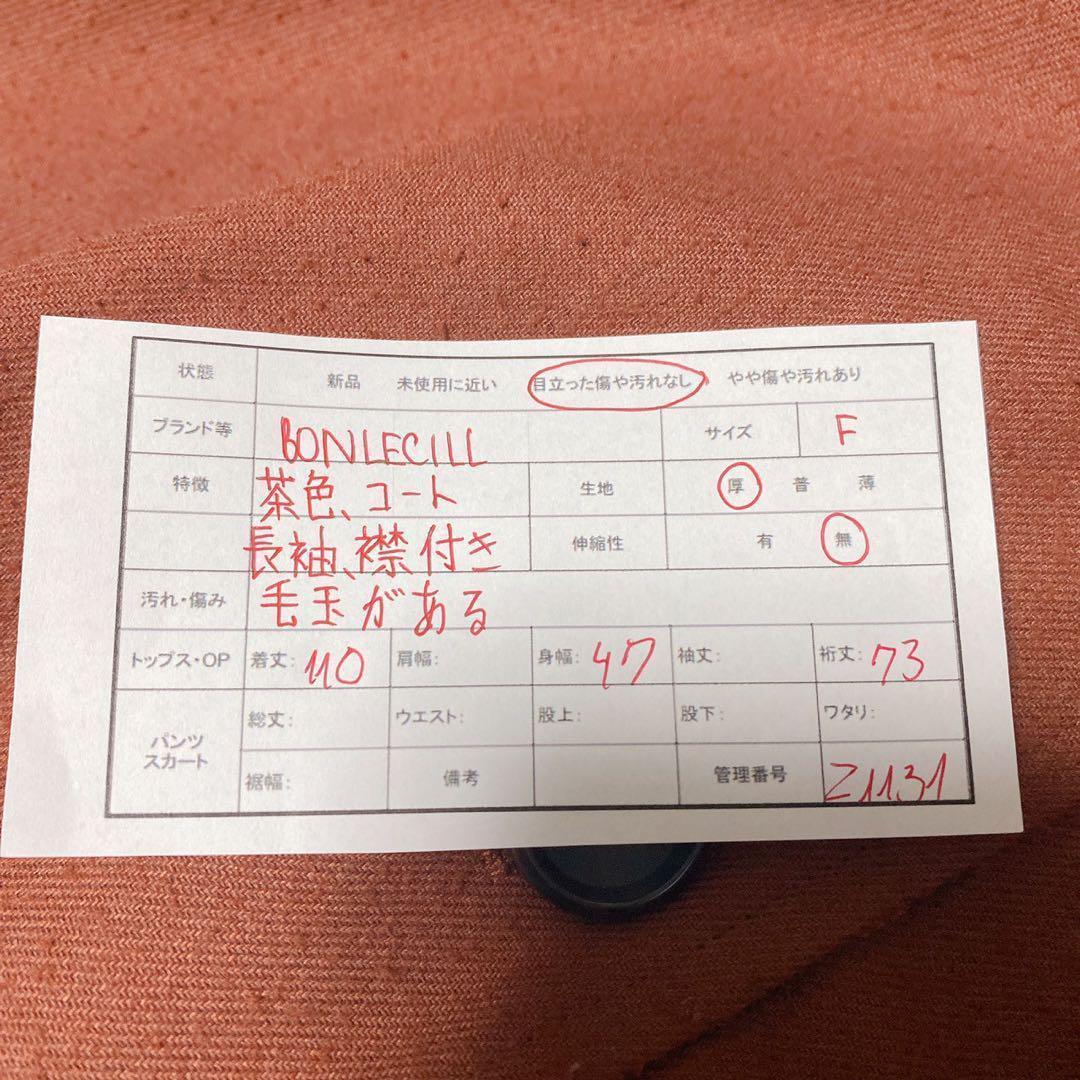 状態 新品 未使用に近い 目立った傷や汚れなし やや傷や汚れあり
ブランド等 BONLECILL サイズ F
特徴 茶色、コート 生地 厚 普 薄
長袖、襟付き 伸縮性 有 無
汚れ・傷み 毛玉がある
トップス・OP 着丈: 110 肩幅: 身幅: 47 袖丈: 裄丈: 73
パンツ スカート 総丈: ウエスト: 股上: 股下: ワタリ:
裾幅: 備考 管理番号 Z1131